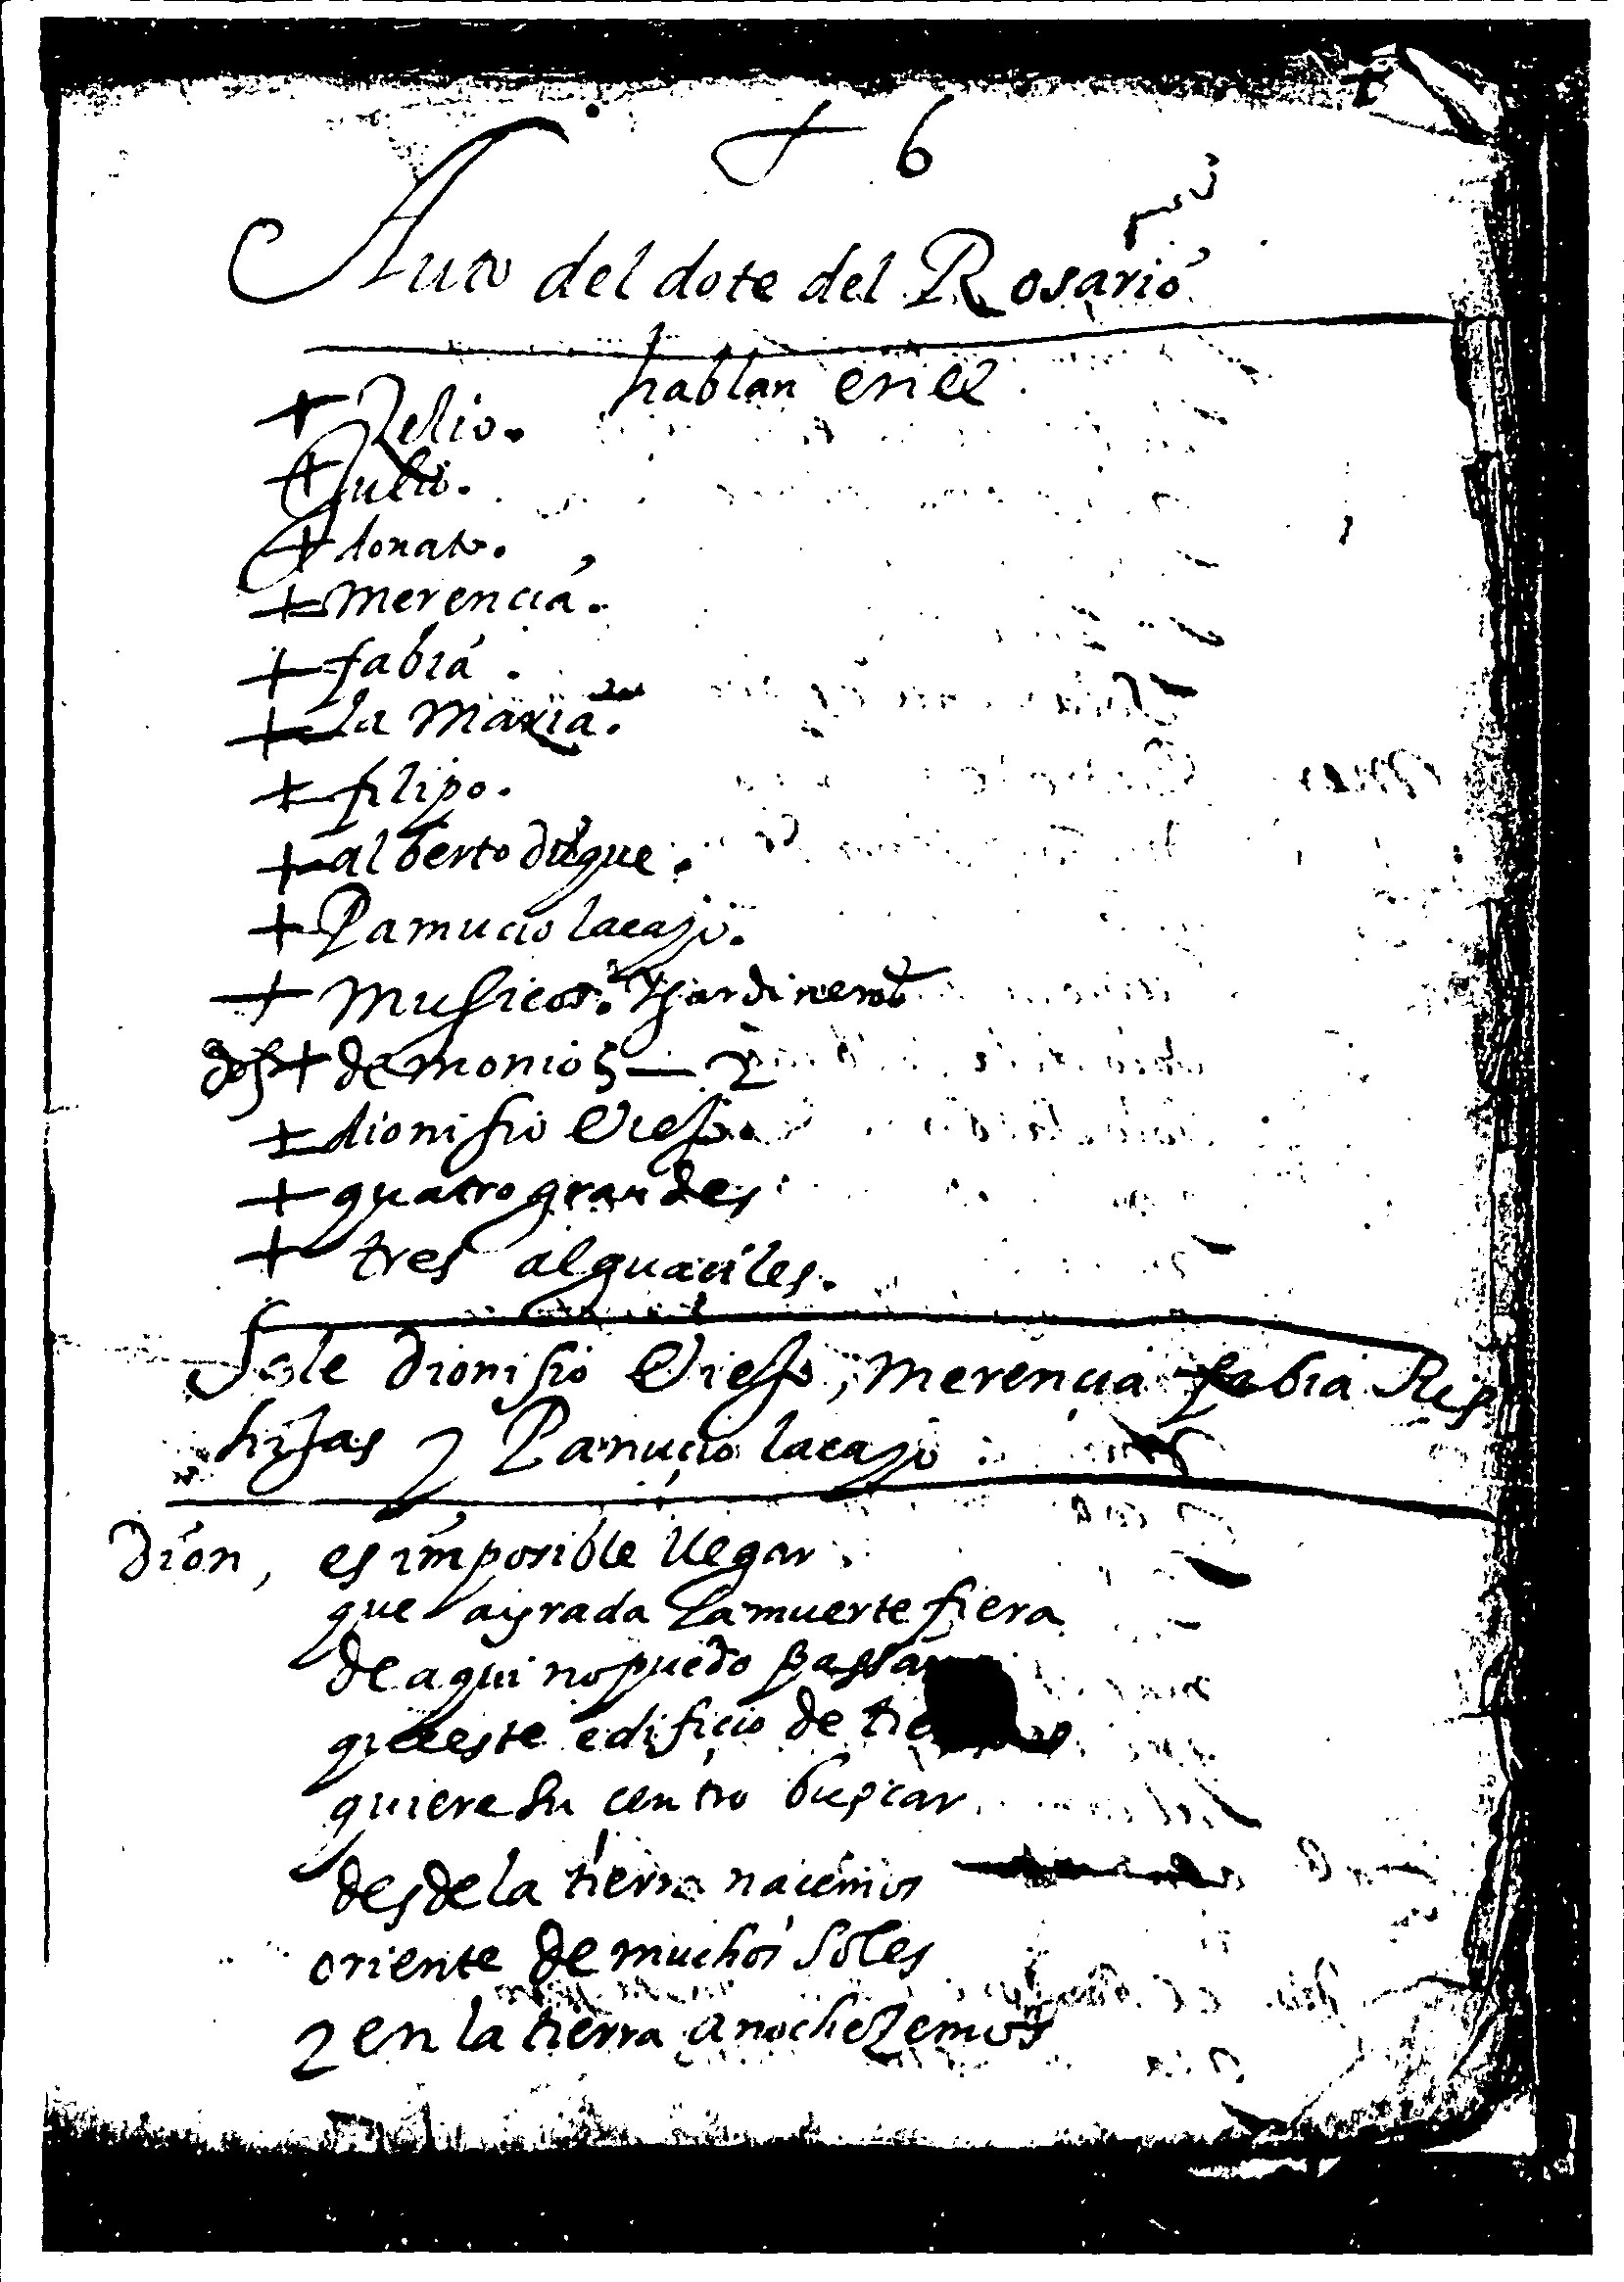 + 6
Auto del dote del Rosario
hablan en el
+ Zelio.
+ Julio.
+ donato.
+ merencia.
+ fabia.
+ la Maria.
+ filipo.
+ alberto duque.
+ Panucio lacayo.
+ Musicos. y jardineros
dos + demonios — 2
+ dionisio Viejo.
+ quatro grandes
+ tres alguaciles.
Sale Dionisio Viejo, merencia fabia sus
hijas y Panucio lacayo
Dion, es imposible llegar
que ayrada la muerte fiera
de aqui no puedo passar
que este edificio de
quiere su centro buscar
desde la tierra nacemos
oriente de muchos soles
y en la tierra anochezemos